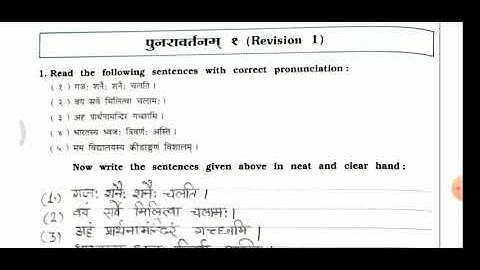 पुनरावर्तनम् १ (Revision 1)
1. Read the following sentences with correct pronunciation :
( १ ) गजः शनैः शनैः चलति ।
( २ ) वय सर्वे मिलित्वा चलामः ।
( ३ ) अह प्रार्थनामन्दिर गच्छामि ।
( ४ ) भारतस्य ध्वजः त्रिवर्णः अस्ति ।
( ५ ) मम विद्यालयस्य क्रीडाङ्गण विशालम् ।
Now write the sentences given above in neat and clear hand :
(1) गजः शनैः शनैः चलति ।
(2) वय सर्वे मिलित्वा चलामः ।
(3) अहं प्रार्थनामन्दिरं गच्छामि ।